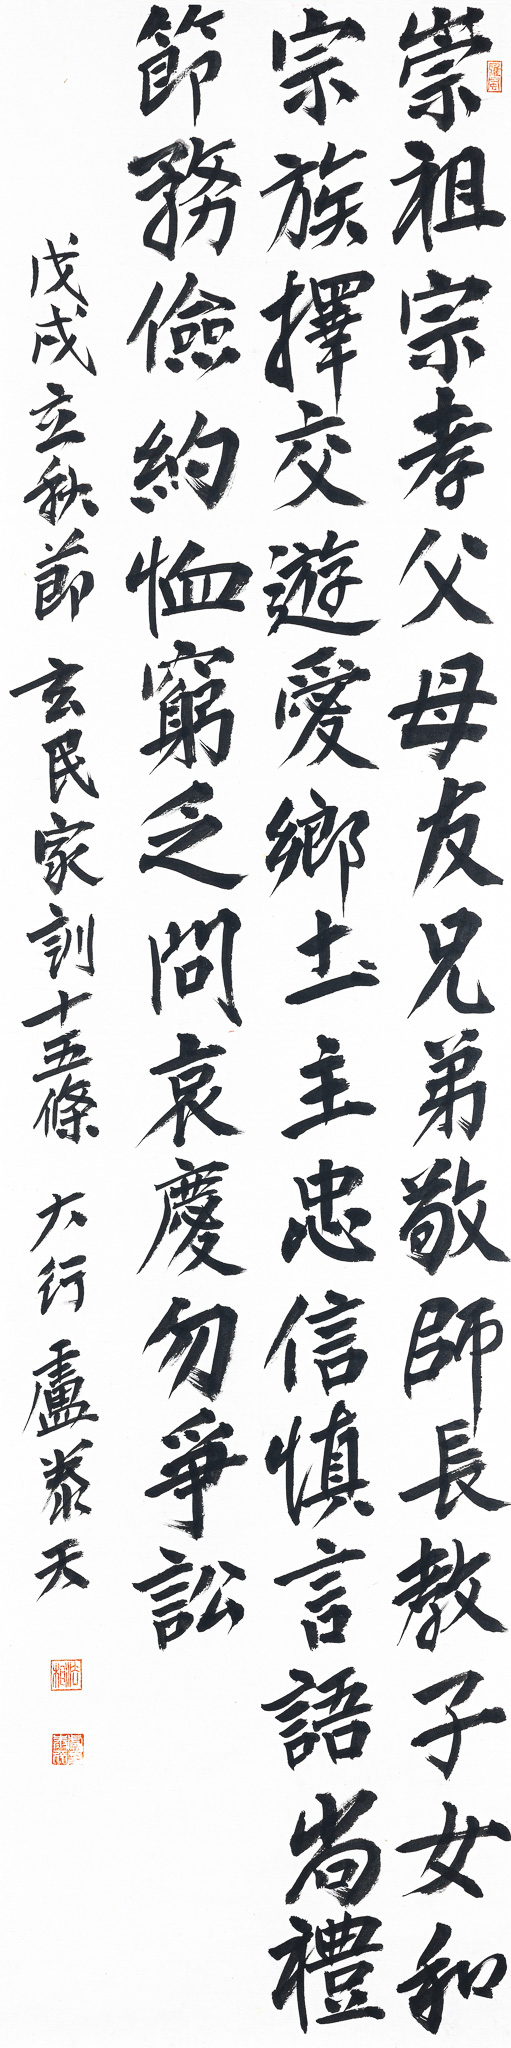 崇祖宗孝父母友兄弟敬師長教子女和
宗族擇交遊愛鄉土主忠信慎言語尚禮
節務儉約恤窮乏問哀慶勿爭訟
戊戌立秋節 玄民家訓十五條 大行 盧泰天